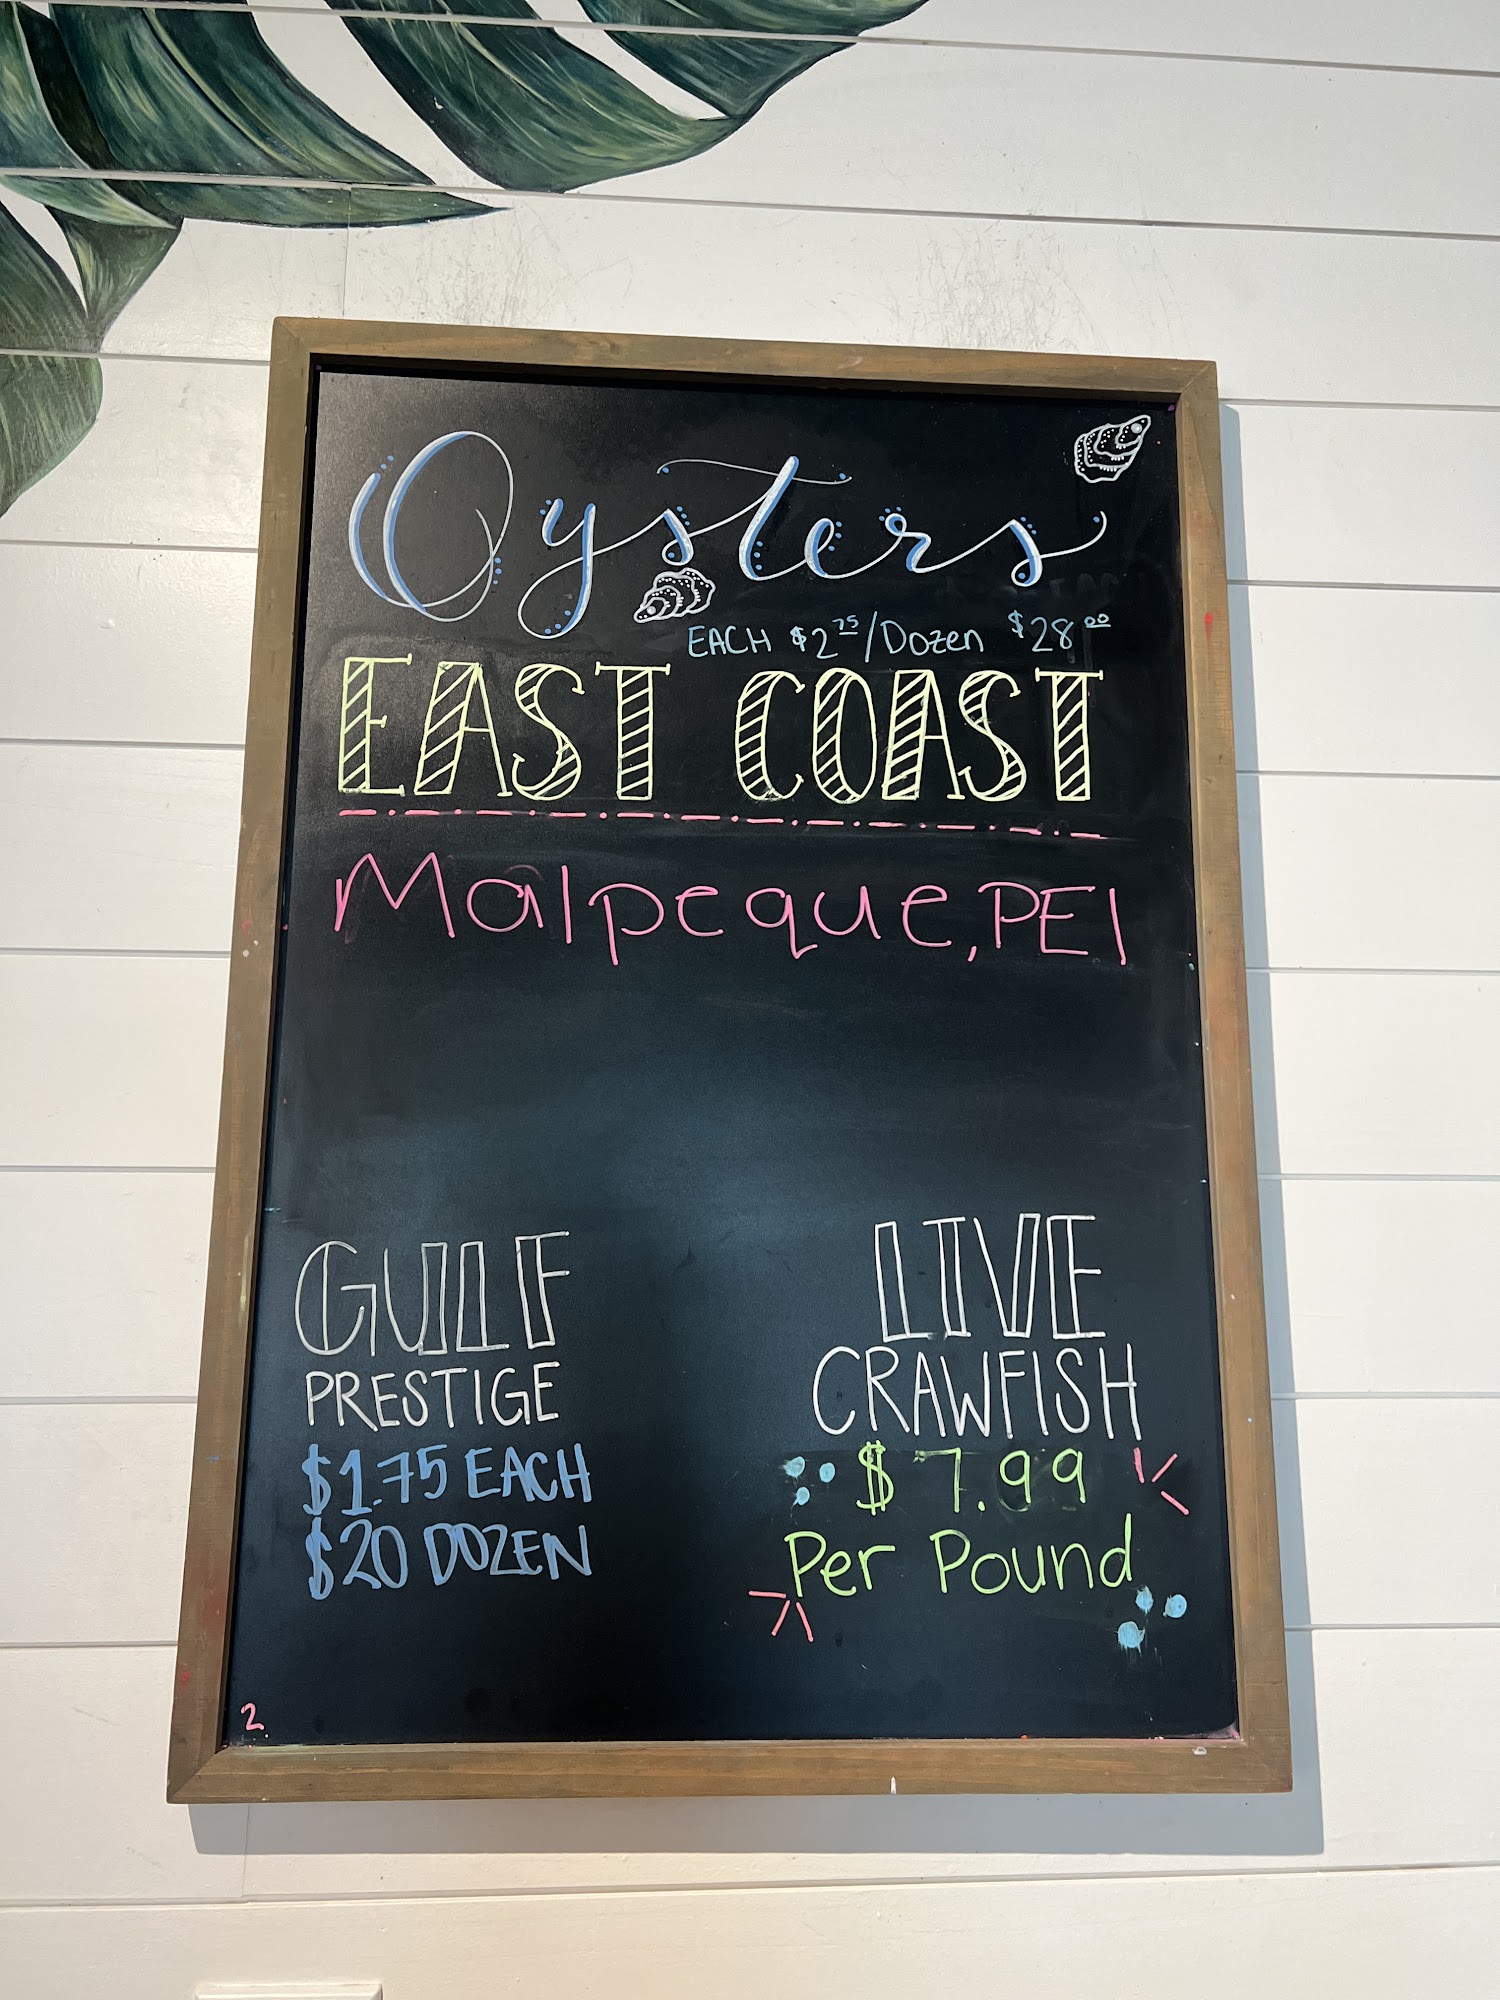 Oysters
EACH $2.75/Dozen $28.00
EAST COAST
Malpeque, PEI
GULF
PRESTIGE
$1.75 EACH
$20 DOZEN
LIVE
CRAWFISH
$7.99
Per Pound
2